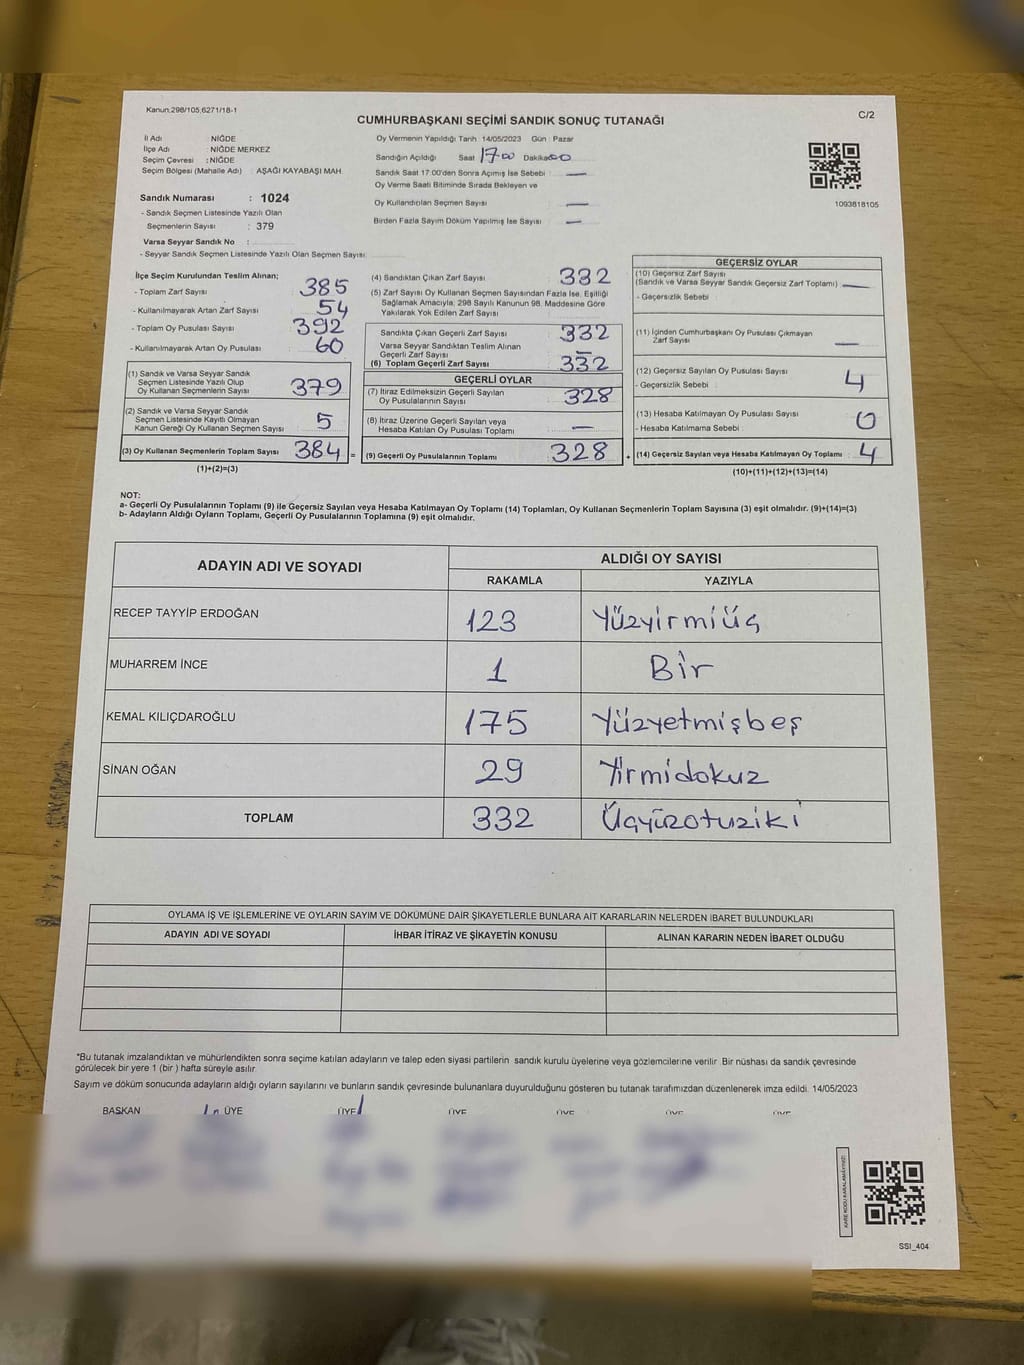 Kanun.298/105;6271/18-1
C/2
CUMHURBAŞKANI SEÇİMİ SANDIK SONUÇ TUTANAĞI
İl Adı : NİĞDE
İlçe Adı : NİĞDE MERKEZ
Seçim Çevresi : NİĞDE
Seçim Bölgesi (Mahalle Adı) : AŞAĞI KAYABAŞI MAH.
Sandık Numarası : 1024
- Sandık Seçmen Listesinde Yazılı Olan
Seçmenlerin Sayısı : 379
Varsa Seyyar Sandık No :
- Seyyar Sandık Seçmen Listesinde Yazılı Olan Seçmen Sayısı
Oy Vermenin Yapıldığı Tarih :14/05/2023 Gün : Pazar
Sandığın Açıldığı Saat 17:00 Dakika 00
Sandık Saat 17:00'den Sonra Açımış İse Sebebi : —
Oy Verme Saati Bitiminde Sırada Bekleyen ve
Oy Kullandırılan Seçmen Sayısı —
Birden Fazla Sayım Döküm Yapılmış İse Sayısı —
1093818105
İlçe Seçim Kurulundan Teslim Alınan;
- Toplam Zarf Sayısı : 385
- Kullanılmayarak Artan Zarf Sayısı : 54
- Toplam Oy Pusulası Sayısı : 392
- Kullanılmayarak Artan Oy Pusulası : 60
(1) Sandık ve Varsa Seyyar Sandık
Seçmen Listesinde Yazılı Olup
Oy Kullanan Seçmenlerin Sayısı : 379
(2) Sandık ve Varsa Seyyar Sandık
Seçmen Listesinde Kayıtlı Olmayan
Kanun Gereği Oy Kullanan Seçmen Sayısı : 5
(3) Oy Kullanan Seçmenlerin Toplam Sayısı : 384 =
(1)+(2)=(3)
(4) Sandıktan Çıkan Zarf Sayısı : 332
(5) Zarf Sayısı Oy Kullanan Seçmen Sayısından Fazla İse, Eşitliği
Sağlamak Amacıyla, 298 Sayılı Kanunun 98. Maddesine Göre
Yakılarak Yok Edilen Zarf Sayısı :
Sandıkta Çıkan Geçerli Zarf Sayısı : 332
Varsa Seyyar Sandıktan Teslim Alınan
Geçerli Zarf Sayısı : —
(6) Toplam Geçerli Zarf Sayısı : 332
GEÇERLİ OYLAR
(7) İtiraz Edilmeksizin Geçerli Sayılan
Oy Pusulalarının Sayısı : 328
(8) İtiraz Üzerine Geçerli Sayılan veya
Hesaba Katılan Oy Pusulası Toplamı : —
(9) Geçerli Oy Pusulalarının Toplamı : 328 +
GEÇERSİZ OYLAR
(10) Geçersiz Zarf Sayısı
(Sandık ve Varsa Seyyar Sandık Geçersiz Zarf Toplamı) : —
- Geçersizlik Sebebi :
(11) İçinden Cumhurbaşkanı Oy Pusulası Çıkmayan
Zarf Sayısı : —
(12) Geçersiz Sayılan Oy Pusulası Sayısı : 4
- Geçersizlik Sebebi :
(13) Hesaba Katılmayan Oy Pusulası Sayısı : 0
- Hesaba Katılmama Sebebi :
(14) Geçersiz Sayılan veya Hesaba Katılmayan Oy Toplamı : 4
(10)+(11)+(12)+(13)=(14)
NOT:
a- Geçerli Oy Pusulalarının Toplamı (9) ile Geçersiz Sayılan veya Hesaba Katılmayan Oy Toplamı (14) Toplamları, Oy Kullanan Seçmenlerin Toplam Sayısına (3) eşit olmalıdır. (9)+(14)=(3)
b- Adayların Aldığı Oyların Toplamı, Geçerli Oy Pusulalarının Toplamına (9) eşit olmalıdır.
ADAYIN ADI VE SOYADI ALDIĞI OY SAYISI
RAKAMLA YAZIYLA
RECEP TAYYİP ERDOĞAN 123 Yüzyirmiüç
MUHARREM İNCE 1 Bir
KEMAL KILIÇDAROĞLU 175 Yüzyetmişbeş
SİNAN OĞAN 29 Yirmidokuz
TOPLAM 332 Üçyüzotuziki
OYLAMA İŞ VE İŞLEMLERİNE VE OYLARIN SAYIM VE DÖKÜMÜNE DAİR ŞİKAYETLERLE BUNLARA AİT KARARLARIN NELERDEN İBARET BULUNDUKLARI
ADAYIN ADI VE SOYADI İHBAR İTİRAZ VE ŞİKAYETİN KONUSU ALINAN KARARIN NEDEN İBARET OLDUĞU
*Bu tutanak imzalandıktan ve mühürlendikten sonra seçime katılan adayların ve talep eden siyasi partilerin sandık kurulu üyelerine veya gözlemcilerine verilir. Bir nüshası da sandık çevresinde
görülecek bir yere 1 (bir) hafta süreyle asılır.
Sayım ve döküm sonucunda adayların aldığı oyların sayılarını ve bunların sandık çevresinde bulunanlara duyurulduğunu gösteren bu tutanak tarafımızdan düzenlenerek imza edildi. 14/05/2023
BAŞKAN ÜYE ÜYE ÜYE ÜYE ÜYE ÜYE
KARE KODU KARALAMAYINIZ!
SSI_404